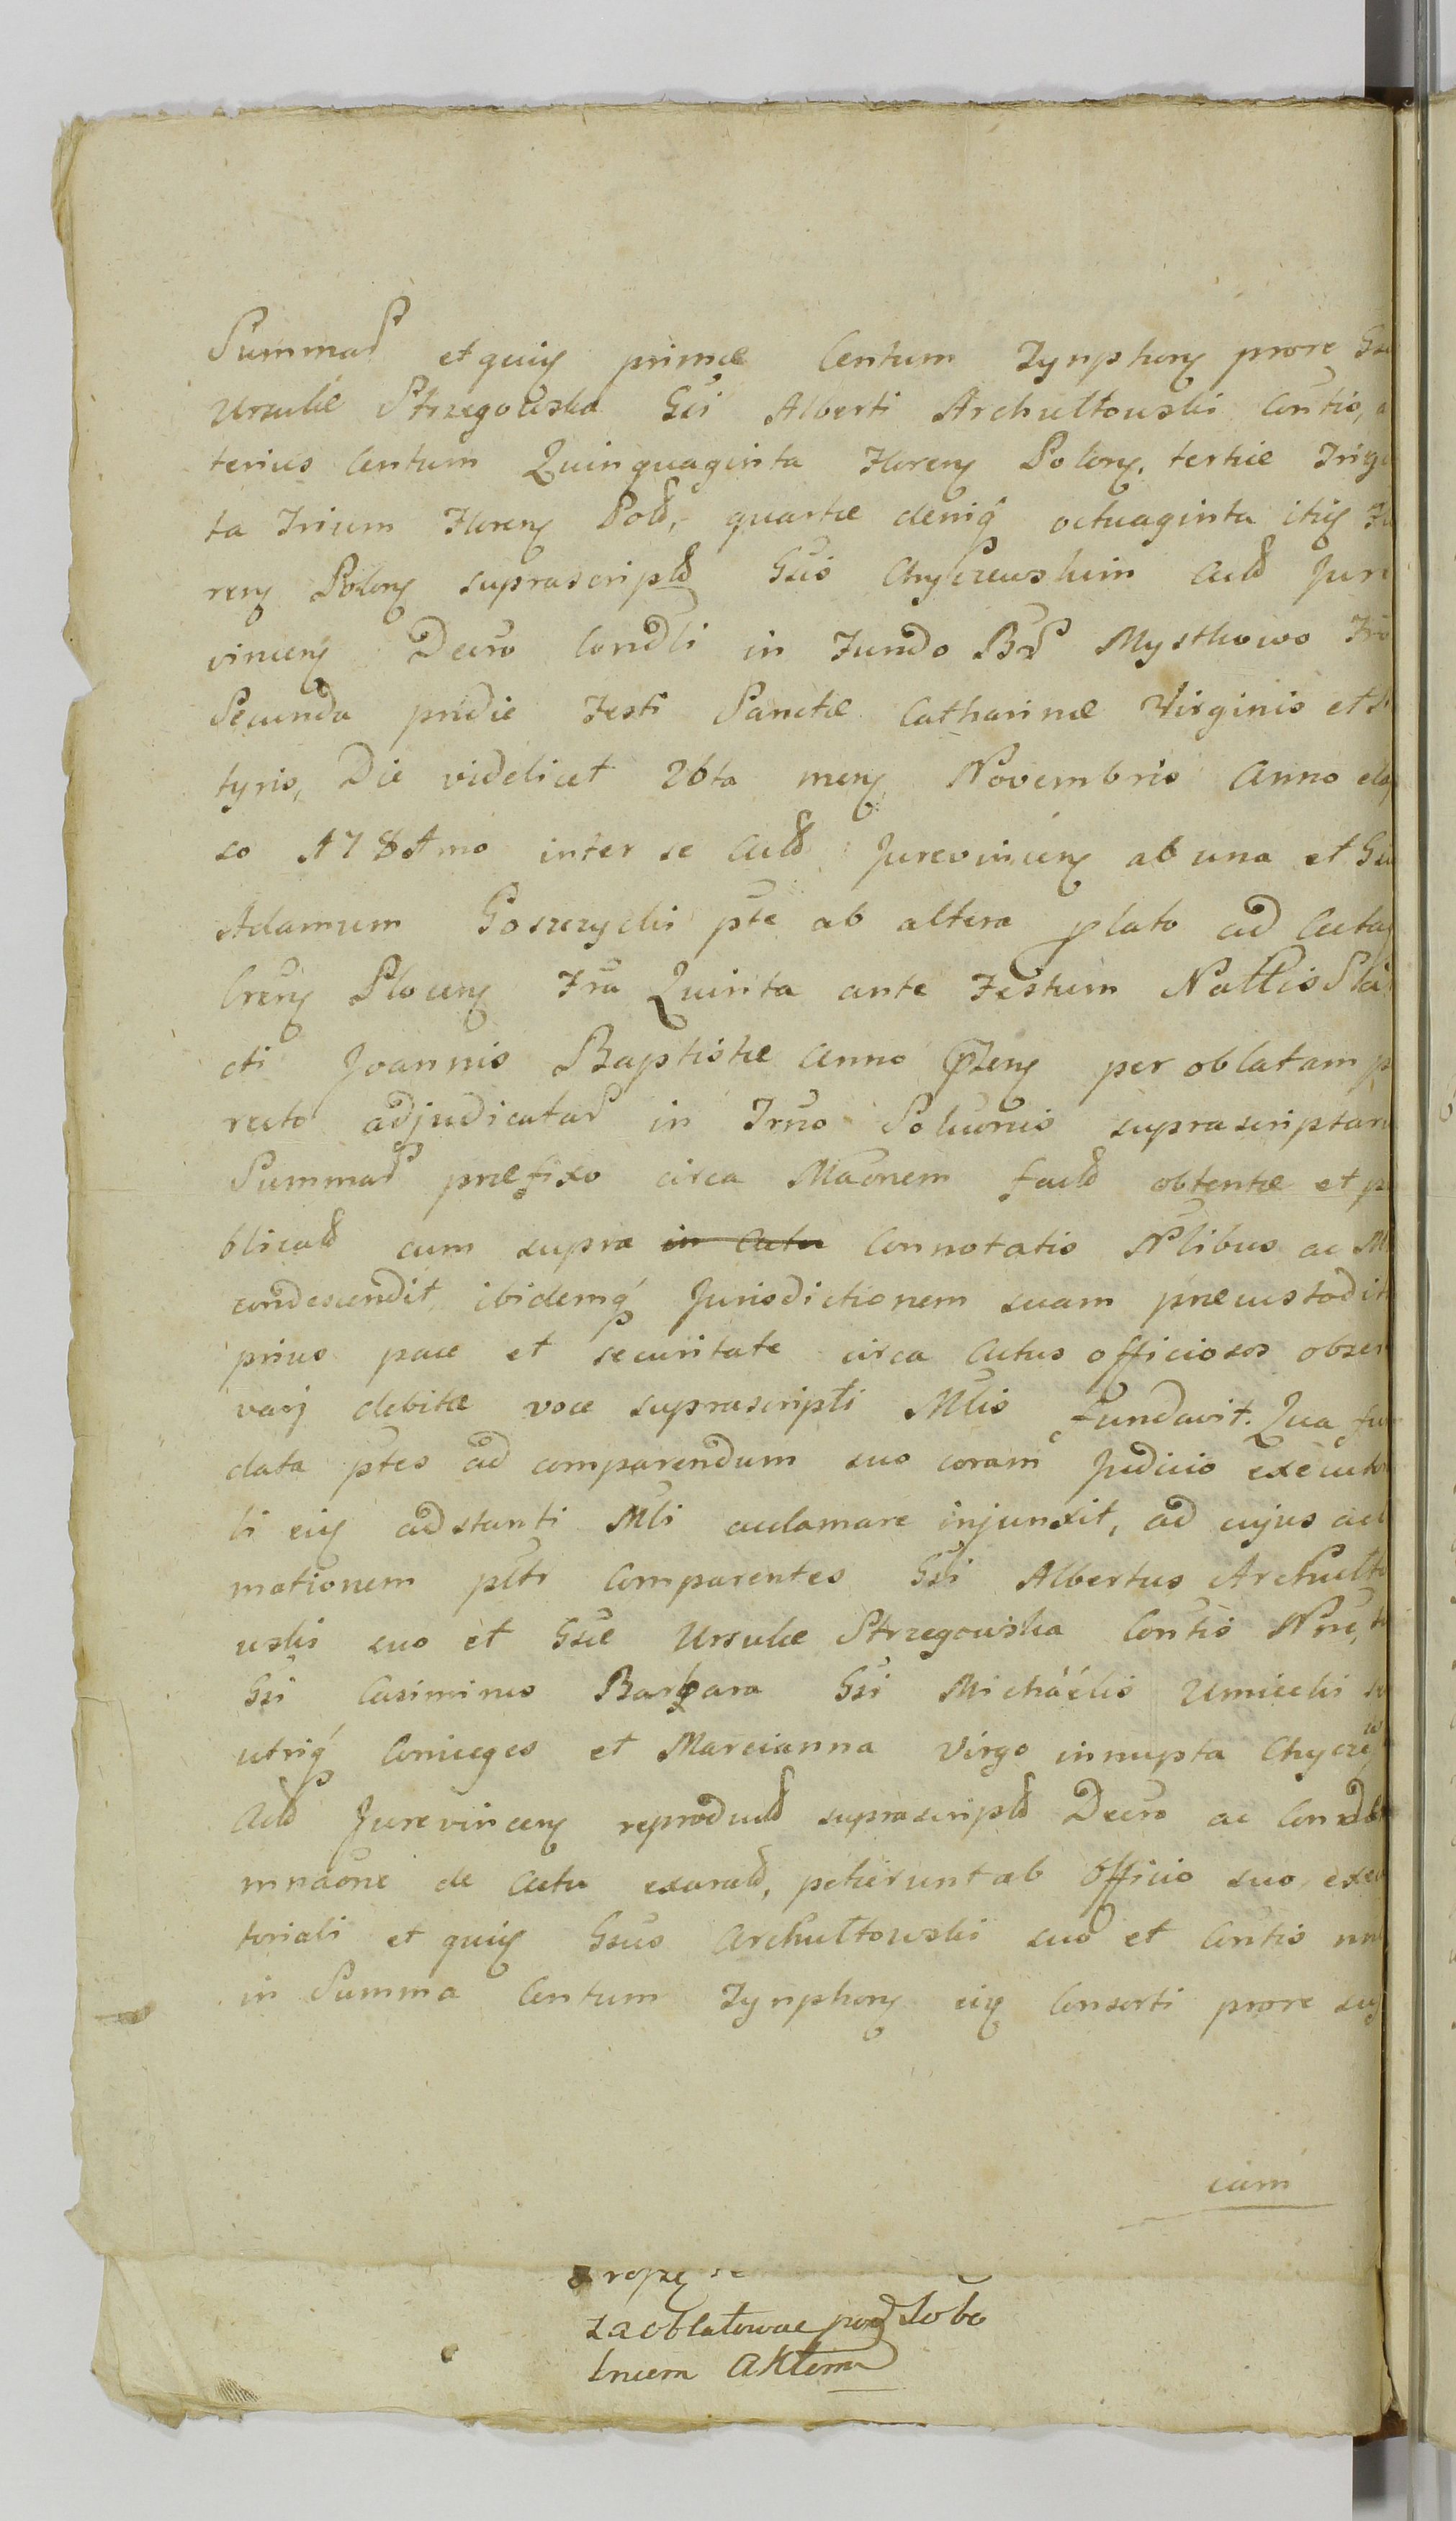 Summar et quiq primæ Centum Tynphonq prore Gs
Ursulæ Strzegowska Gsi Alberti Archultowski Contis, a
terius Centum Quinquaginta Florenq Polonq, tertiæ Trigi
ta Trium Florenq Pold, quartæ deniq octuaginta itiq Fl
renq Polonq suprascriptd Gsis Chyczewskim Actd Jure
vincenq Decro Condli in Fundo Br Mystkowo Fr
Secunda pridie Festi Sanctæ Catharinæ Virginis et
tyris, Die videlicet 26ta menq Novembris Anno ela
so 1781mo inter se Actd Jurevincenq ab una et Gs
Adamum Goszczycki pte ab altera plato ad Acta
Crenq Plocenq Fra Quinta ante Festum Nattis Sa
cti Joannis Baptistæ Anno Psenq per oblatam p
recto adjudicatar in Trno Soluonis suprascriptar
Summar præfixo circa Maonem factd obtentæ et p
blicatd cum supra in Actu Connotatis Nlibus ac M
condescendit, ibidemq Jurisdictionem suam præcustodit
prius pace et securitate circa Actus officiosos obser
varj debitæ voce suprascripti Mlis fundavit. Qua fu
data ptes ad comparendum suo coram Judicio executo
li eiq adstanti Mli acclamare injunxit, ad cujus acl
mationem pltr Comparentes Gsi Albertus Archulto
wski suo et Gsæ Ursulæ Strzegowska Contis Nne,
Gsi Casimirus Barbara Gsi Michäélis Umiecki
utriq Coniuges et Marcianna Virgo innupta Chycze
Actd Jurevincenq reproductd suprascriptd Decro ac Condb
mnaone de Actu exaratd, petierunt ab Officio suo exe
toriali et quiq Gsus Archultowski suo et Contis nn
in Summa Centum Tynphonq eiq Consorti prore su
cum
zaoblatowac pod Sobo
tnem Aktem